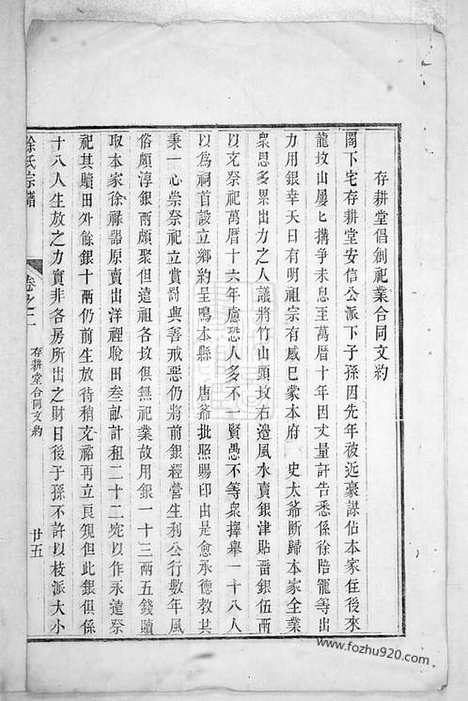 存耕堂倡創祀業合同文約
閣下宅存耕堂安信公派下子孫因先年被近豪謀佔本家住後來
龍坟山屢匕搆爭未息至萬曆十年因丈量計告悉係徐陪寵等出
力用銀幸天日有明祖宗有威巳蒙本府　史太爺断歸本家全業
衆思多累出力之人議將竹山頭坟右邉風水賣銀津貼畨銀伍兩
以充祭祀萬曆十六年慮恐人多不一賢愚不等衆擇舉一十八人
以為祠首設立鄉約呈鳴本縣　唐爺批照賜印由是愈承德教其
秉一心崇祭祀立賞罰與善戒惡仍將前銀經營生利公行數年風
俗頗淳銀兩頗聚但遠祖各坟俱無祀業故用銀一十三兩五錢贖
取本家徐祿器原賣出洋裡脫田叁畝計租二十二䆓以作永遠祭
祀其贖田外餘銀十兩仍前生放待積充裕再立良規但此銀俱係
十八人生放之力實非各房所出之財日後子孫不許以枝派大小
徐氏宗譜
卷之一
存耕堂合同文約
廿五
www.fozhu920.com